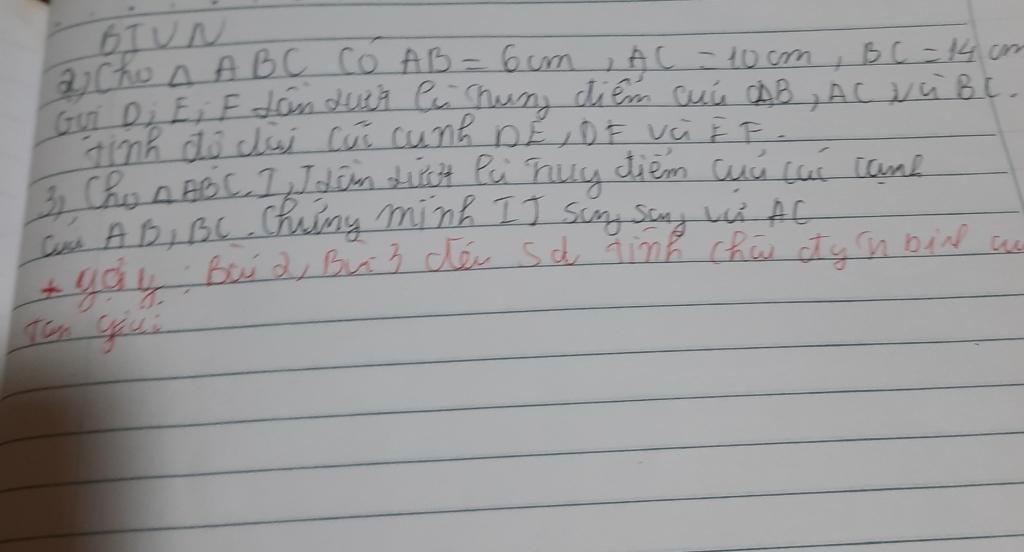 BTVN
2, Cho Δ ABC có AB = 6 cm, AC = 10 cm, BC = 14 cm
Gọi D, E, F lần lượt là trung điểm của AB, AC và BC.
tính độ dài các cạnh DE, DF và EF.
3, Cho Δ ABC. I, J lần lượt là trung điểm của các cạnh
của AB, BC. Chứng minh IJ song song với AC
* gợi ý: Bài 2, Bài 3 đều sd tính chất đg tr bình của
tam giác